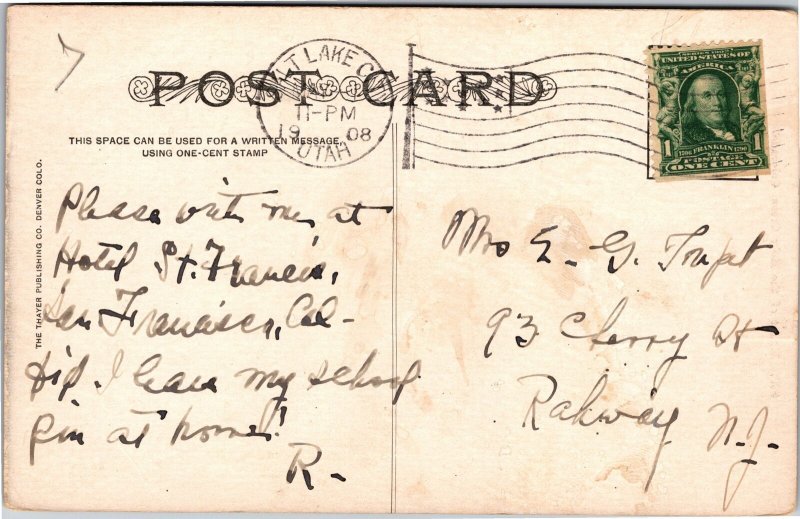 POST CARD
SALT LAKE C
11-PM
19 08
UTAH
SERIES 1902
UNITED STATES OF
AMERICA
1 1
1706 FRANKLIN 1790
POSTAGE
ONE CENT
THIS SPACE CAN BE USED FOR A WRITTEN MESSAGE
USING ONE-CENT STAMP
THE THAYER PUBLISHING CO. DENVER COLO.
Please write me at
Hotel St. Francis,
San Francisco, Cal-
Did I leave my school
pin at home!
R-
Mrs E. G.
93 Cherry St
Rahway N.J.